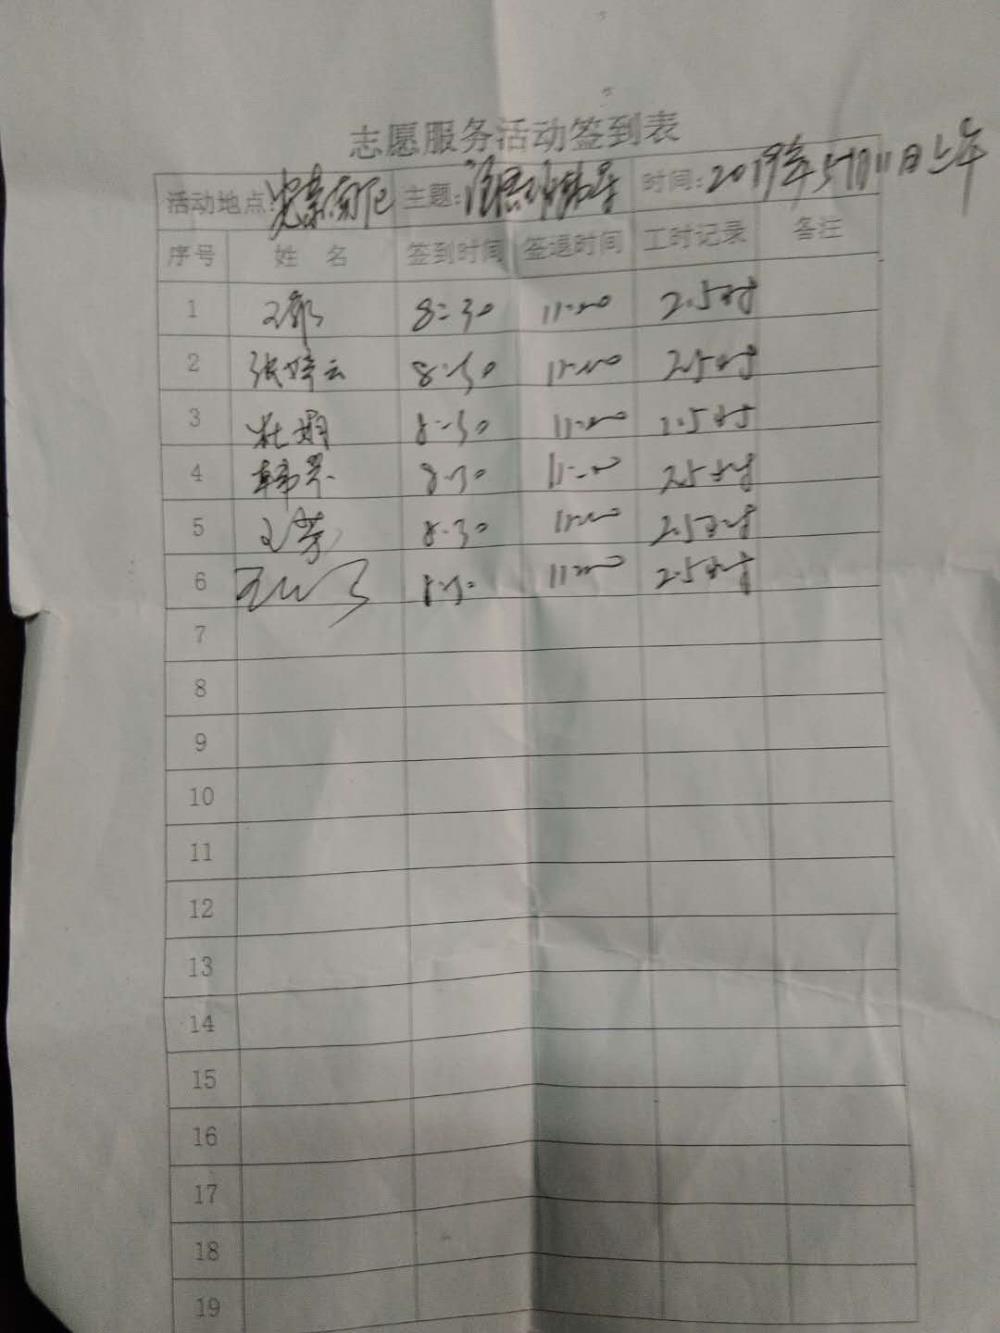 志愿服务活动签到表
活动地点: 主题: 时间: 2019年5月11日上午
序号 姓 名 签到时间 签退时间 工时记录 备注
1 8:30 11:00 2.5时
2 张婷云 8:30 11:00 2.5时
3 杜娟 8:30 11:00 2.5时
4 韩 8:30 11:00 2.5时
5 王芳 8:30 11:00 2.5小时
6 8:30 11:00 2.5小时
7
8
9
10
11
12
13
14
15
16
17
18
19